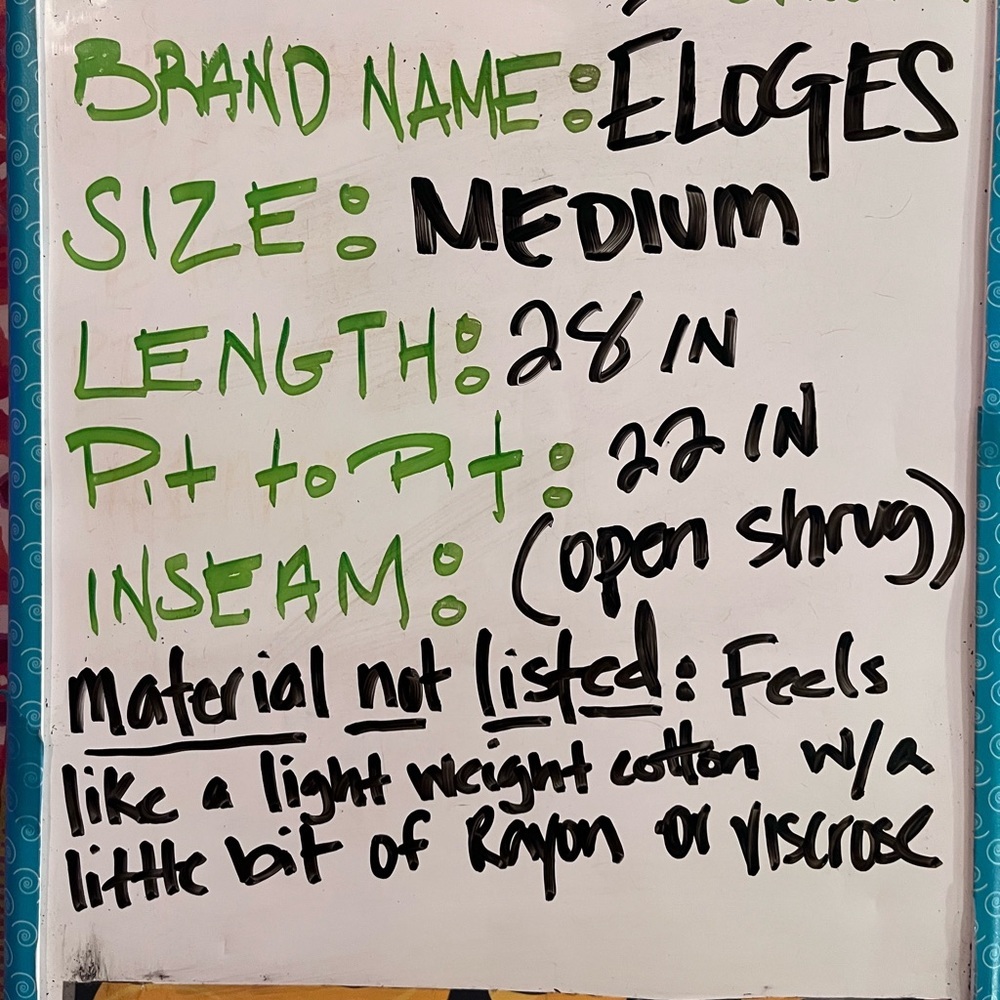 BRAND NAME: ELOGES
SIZE: MEDIUM
LENGTH: 28 IN
Pit to Pit: 22 IN
(open shrug)
INSEAM:
material not listed: Feels
like a light weight cotton w/a
little bit of Rayon or viscrose